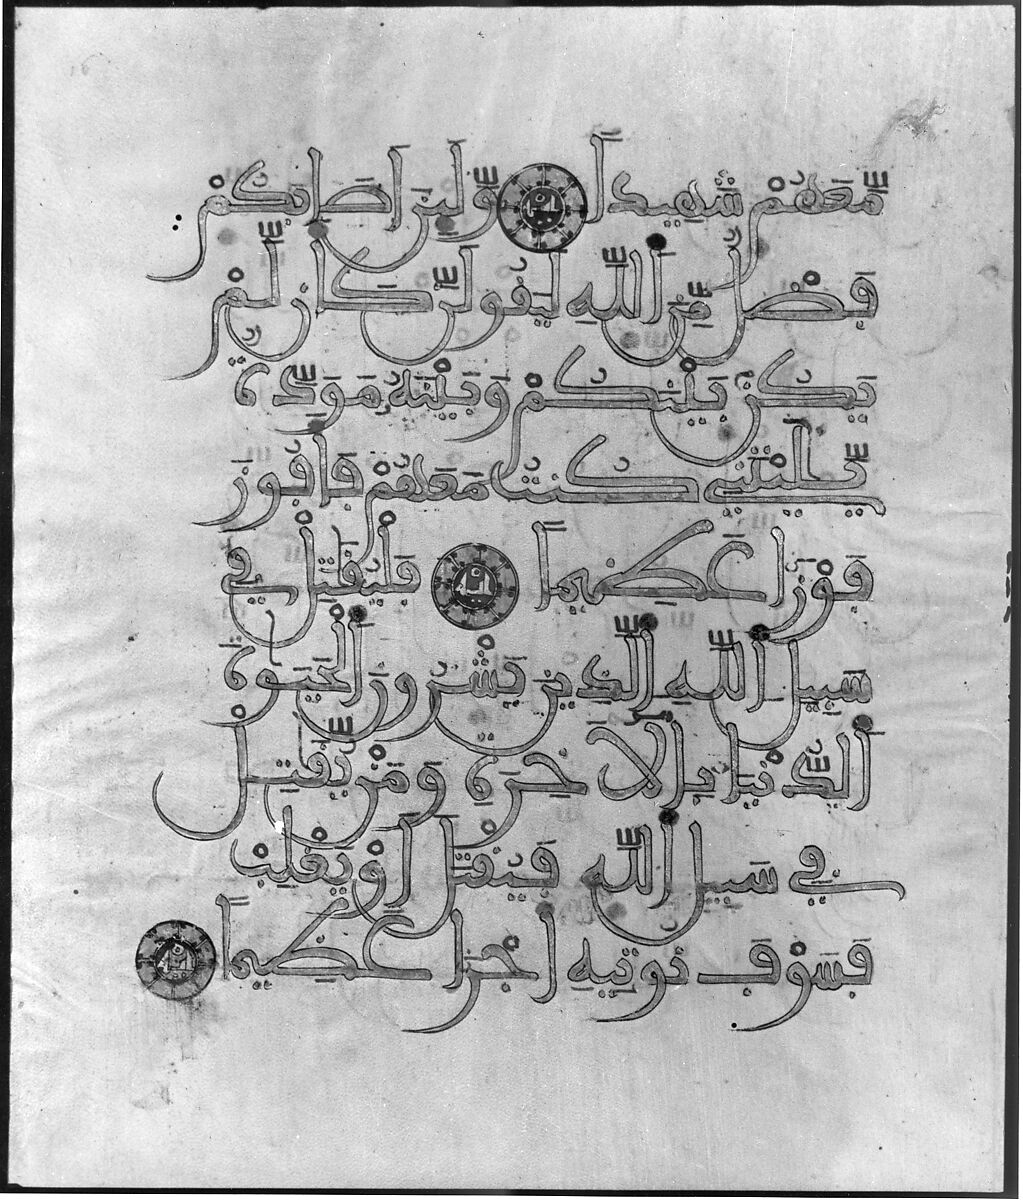 مَّعَهُمْ شَهِيدًا وَلَئِنْ أَصَٰبَكُمْ
فَضْلٌ مِّنَ ٱللَّهِ لَيَقُولَنَّ كَأَن لَّمْ
يَكُنۢ بَيْنَكُمْ وَبَيْنَهُۥ مَوَدَّةٌ
يَٰلَيْتَنِي كُنتُ مَعَهُمْ فَأَفُوزَ
فَوْزًا عَظِيمًا فَلْيُقَٰتِلْ فِي
سَبِيلِ ٱللَّهِ ٱلَّذِينَ يَشْرُونَ ٱلْحَيَوٰةَ
ٱلدُّنْيَا بِٱلْأَخِرَةِ وَمَنْ يُقَٰتِلْ
فِي سَبِيلِ ٱللَّهِ فَيُقْتَلْ أَوْ يَغْلِبْ
فَسَوْفَ نُوتِيهِ أَجْرًا عَظِيمًا